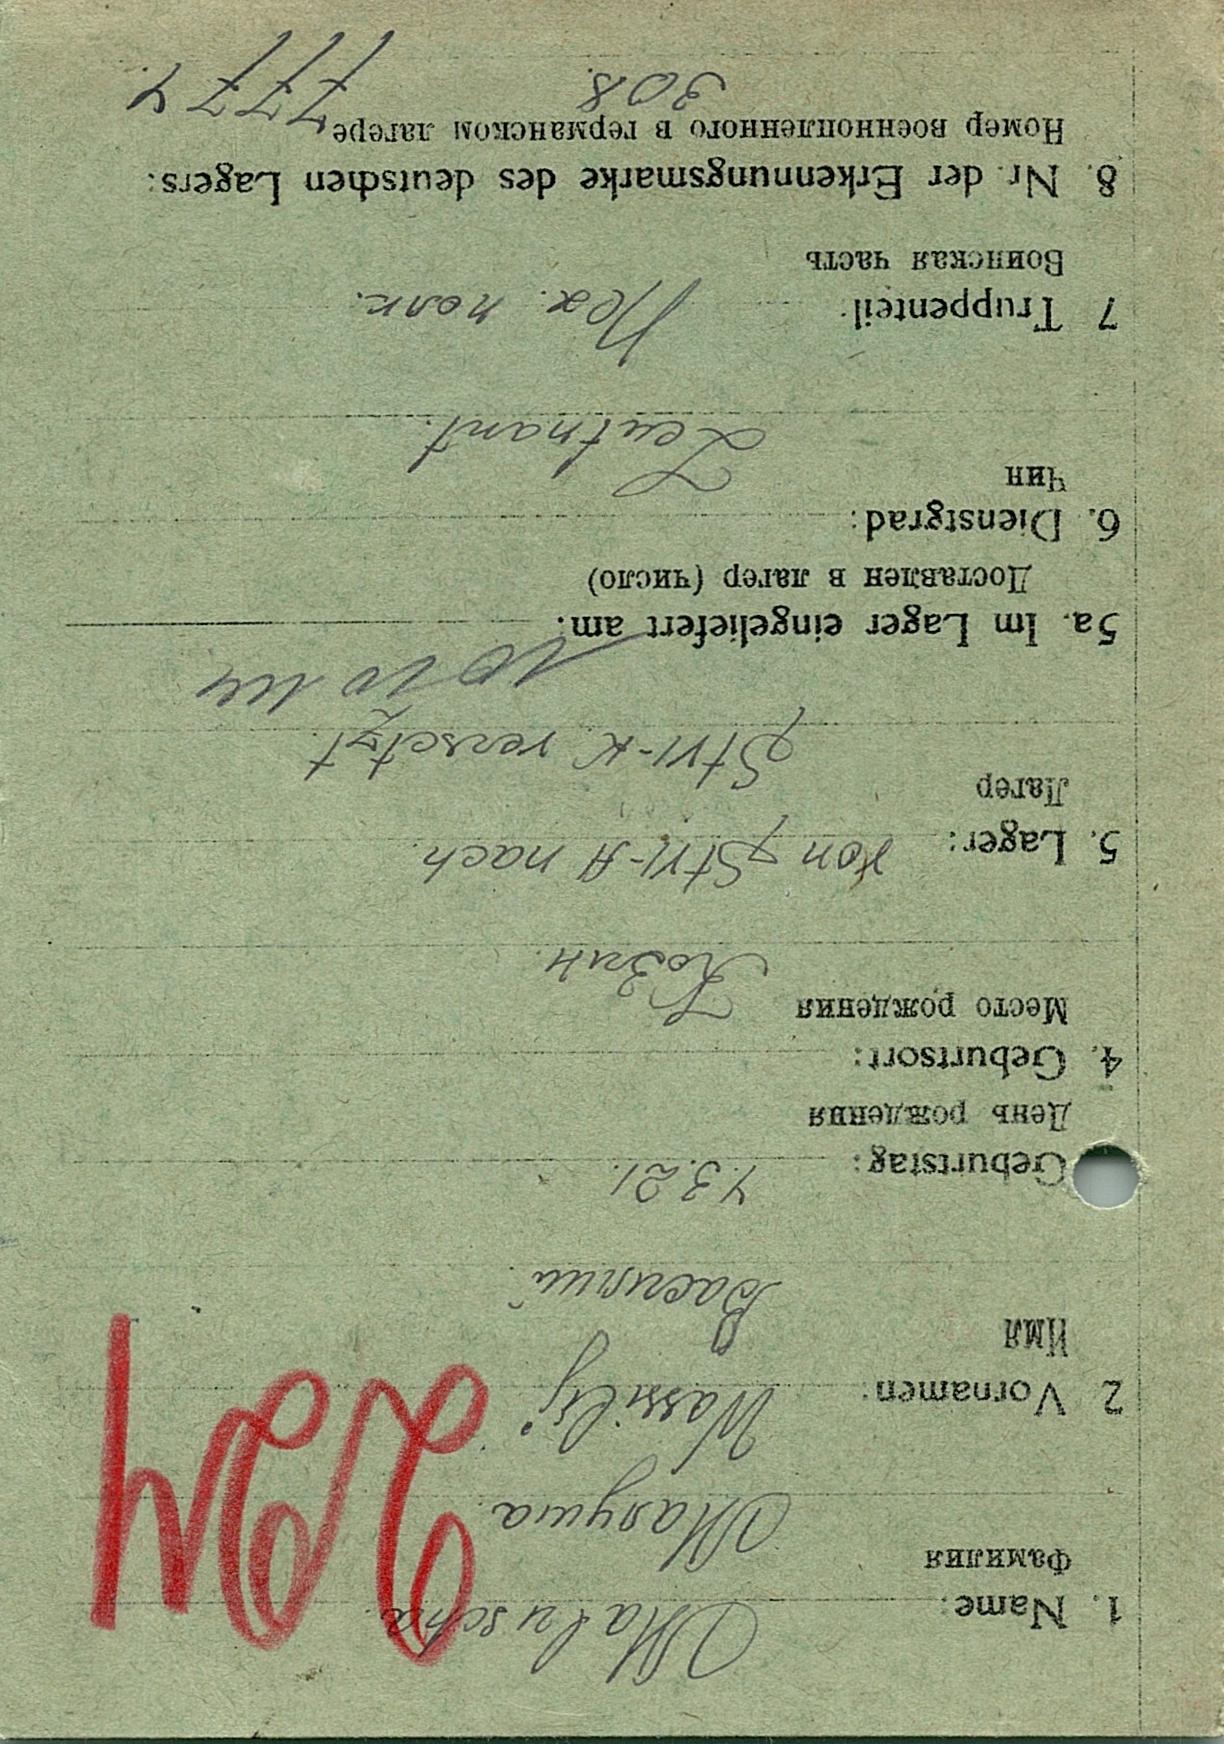 1. Name: Maluscha.
Фамилия Малуша
2 Vornamen: Wassilij
Имя Василий
Geburtstag: 4.3.21.
День рождения
4. Geburtsort:
Место рождения Козин.
5. Lager: von St VI-A nach
Лагер St VI-K versetzt.
10 10 44
5a. Im Lager eingeliefert am:
Доставлен в лагер (число)
6. Dienstgrad:
Чин Leutnant.
7 Truppenteil Пех. полк.
Воинская часть
8. Nr. der Erkennungsmarke des deutschen Lagers:
Номер военнопленного в германском лагере 7774
308.